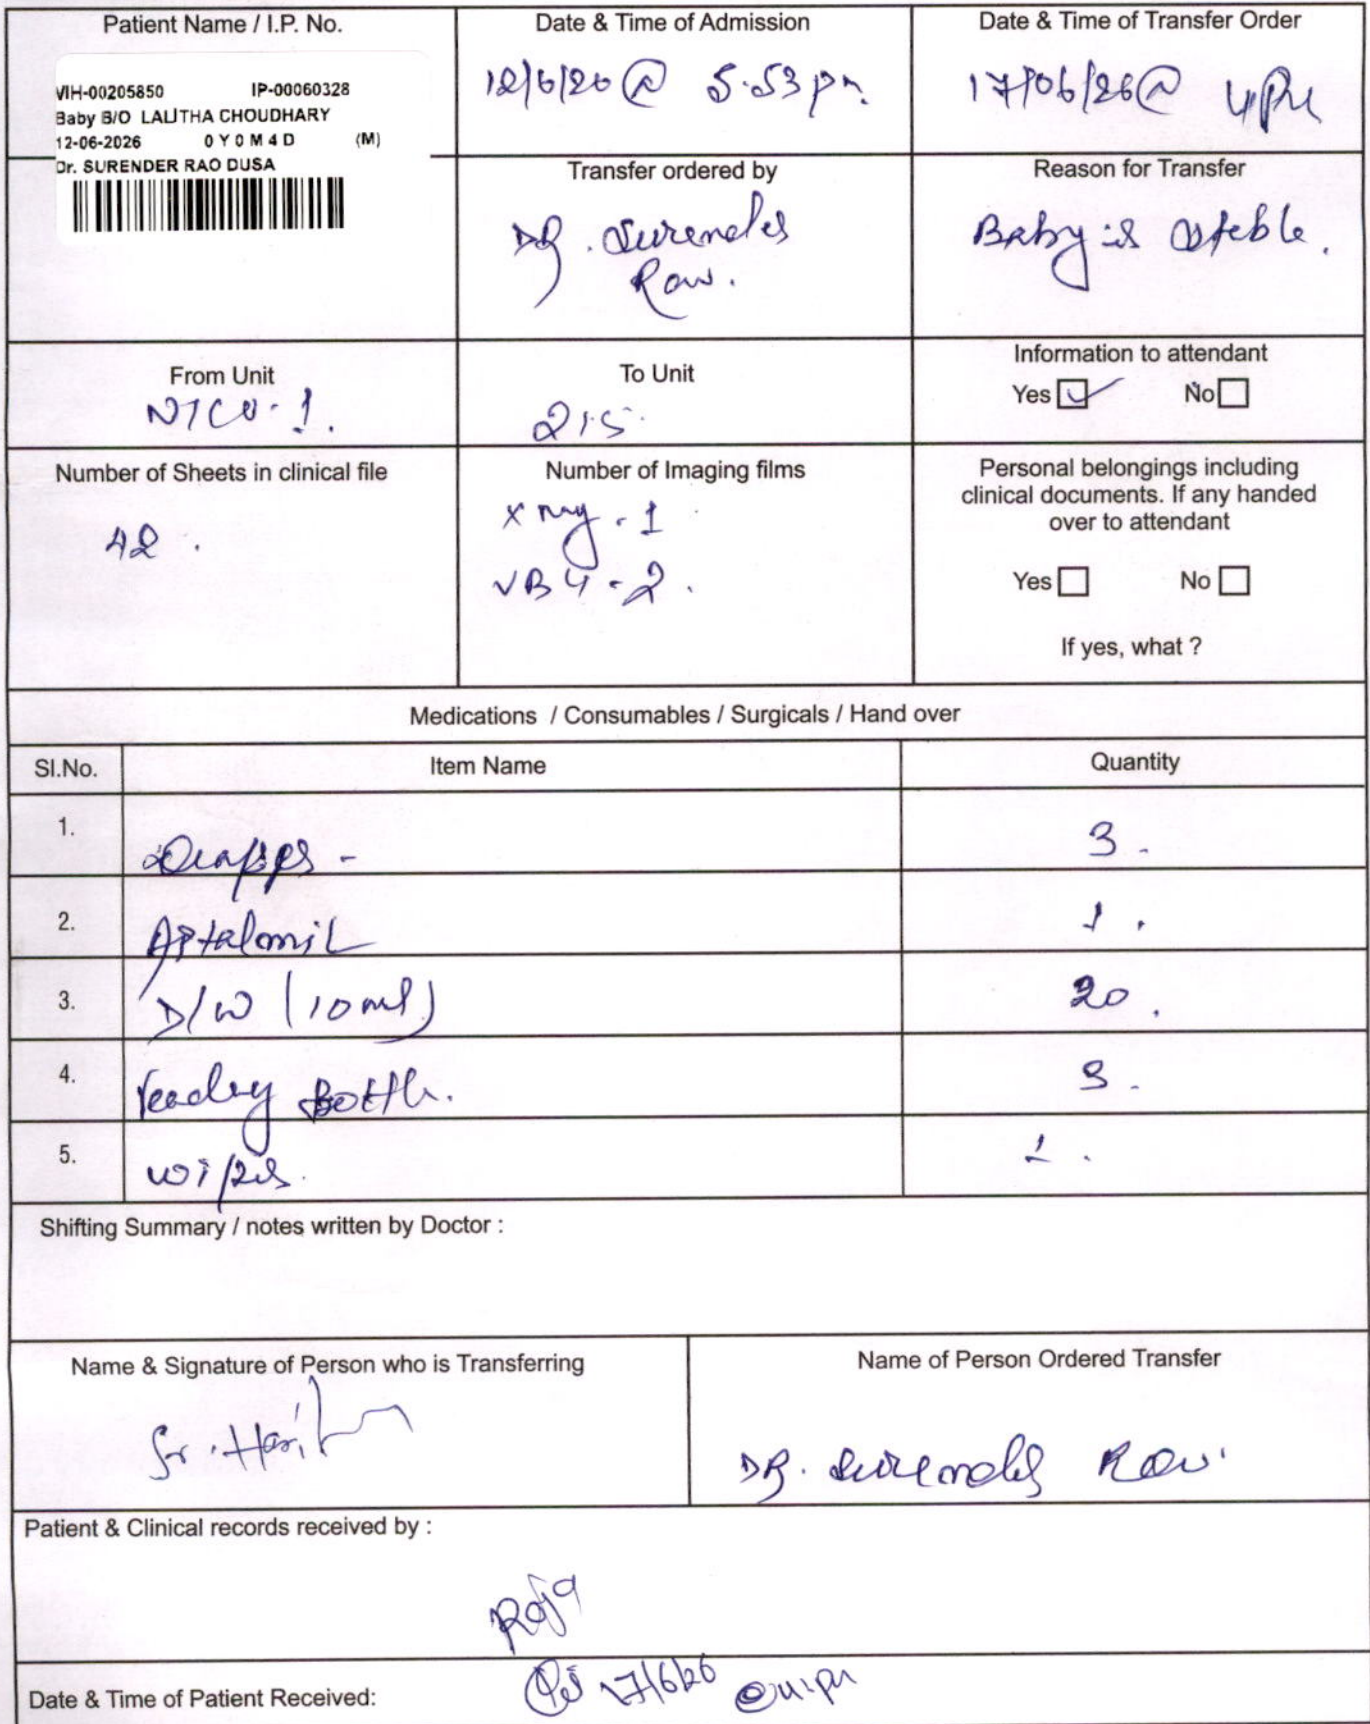 Patient Name / I.P. No.
Date & Time of Admission
Date & Time of Transfer Order
VIH-00205850 IP-00060328
Baby B/O LALITHA CHOUDHARY
12-06-2026 0 Y 0 M 4 D (M)
Dr. SURENDER RAO DUSA
12/6/26 @ 5:53 pm
17/06/26 @ 4 PM
Transfer ordered by
DR. Surender
Rao.
Reason for Transfer
Baby is stable.
From Unit
NICU-1.
To Unit
215
Information to attendant
Yes ✓ No
Number of Sheets in clinical file
42.
Number of Imaging films
x ray - 1
VBG - 2.
Personal belongings including
clinical documents. If any handed
over to attendant
Yes No
If yes, what ?
Medications / Consumables / Surgicals / Hand over
Sl.No. Item Name Quantity
1. 3.
2. Aptalomil 1.
3. D/W (10ml) 20.
4. Bottle. 3.
5. wipes. 1.
Shifting Summary / notes written by Doctor :
Name & Signature of Person who is Transferring
Sr. Harit
Name of Person Ordered Transfer
DR. Surender Rao.
Patient & Clinical records received by :
Roja
Date & Time of Patient Received: 17/6/26